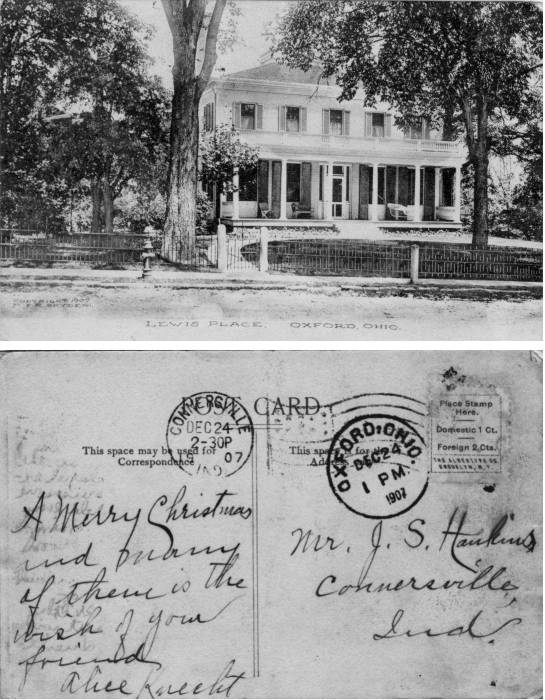 COPYRIGHT 1907
SNYDER.
LEWIS PLACE. OXFORD, OHIO.
POST CARD.
CONNERSVILLE
DEC 24
2-30P
07
IND.
OXFORD, OHIO.
DEC 24
1 PM.
1907
Place Stamp
Here.
Domestic 1 Ct.
Foreign 2 Cts.
THE ALBERTYPE CO.
BROOKLYN, N.Y.
This space may be used for
Correspondence
This space is for the
A Merry Christmas
and many
of them is the
wish of your
friend
Alice Knecht
Mr. J. S. Hankins
Connersville,
Ind.